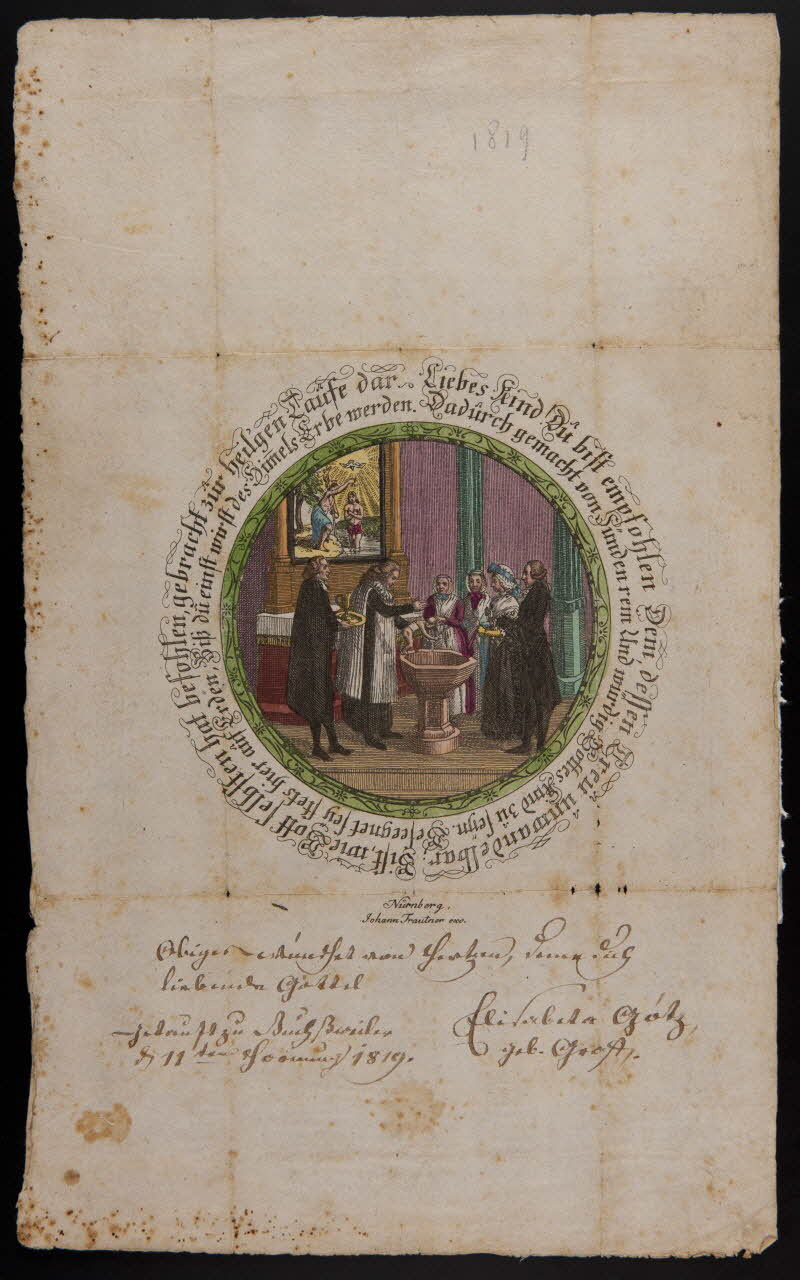 1819
Liebes Kind! Dü bist empfohlen Dem, dessen Treü ünwandelbar: Bist, wie Gott selbsten hat befohlen, gebracht zür heil'gen Taüfe dar.
Dadürch gemacht von Sünden rein Und würdig Gottes Kind zü seyn. Geseegnet sey stets hier aüf Erden Biß dü einst wirst des Himels Erbe werden.
Nürnberg,
Johann Trautner exc.
Obiges wünschet von Hertzen, deine dich
liebende Gottel
getauft zu Buchsweiler
d 11ten Hornung 1819.
Elisabeta Götz,
geb. Groß.